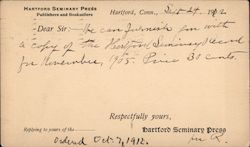 HARTFORD SEMINARY PRESS
Publishers and Booksellers
Hartford, Conn., Sept 24, 1912
Dear Sir:— We can furnish you with
a copy of the Hartford Seminary Record
for November, 1905. Price 30 cents.
Respectfully yours,
Replying to yours of the
Hartford Seminary Press
Ordered Oct. 7, 1912.
R.